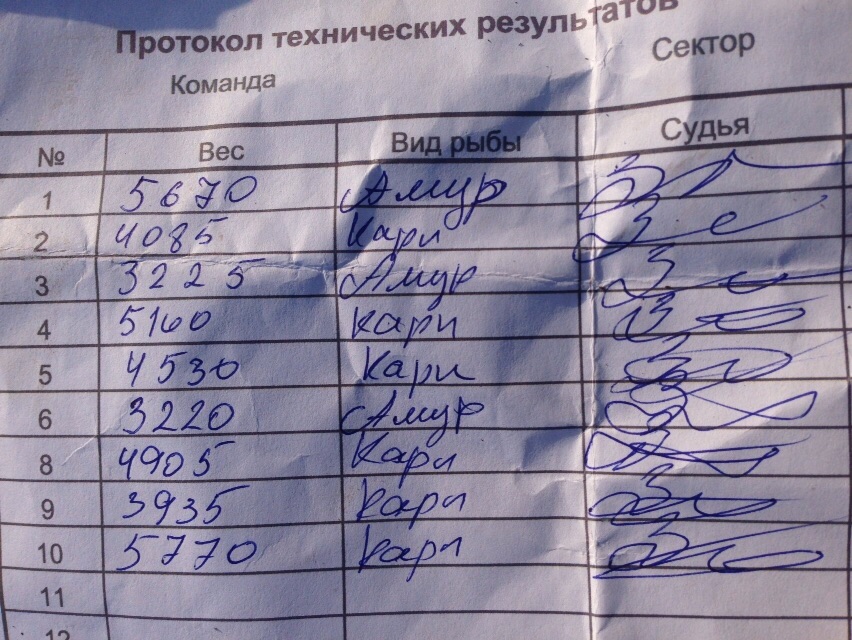 Протокол технических результатов
Команда Сектор
№ Вес Вид рыбы Судья
1 5670 Амур
2 4085 Карп
3 3225 Амур
4 5160 Карп
5 4530 Карп
6 3220 Амур
8 4905 Карп
9 3935 Карп
10 5770 Карп
11
12